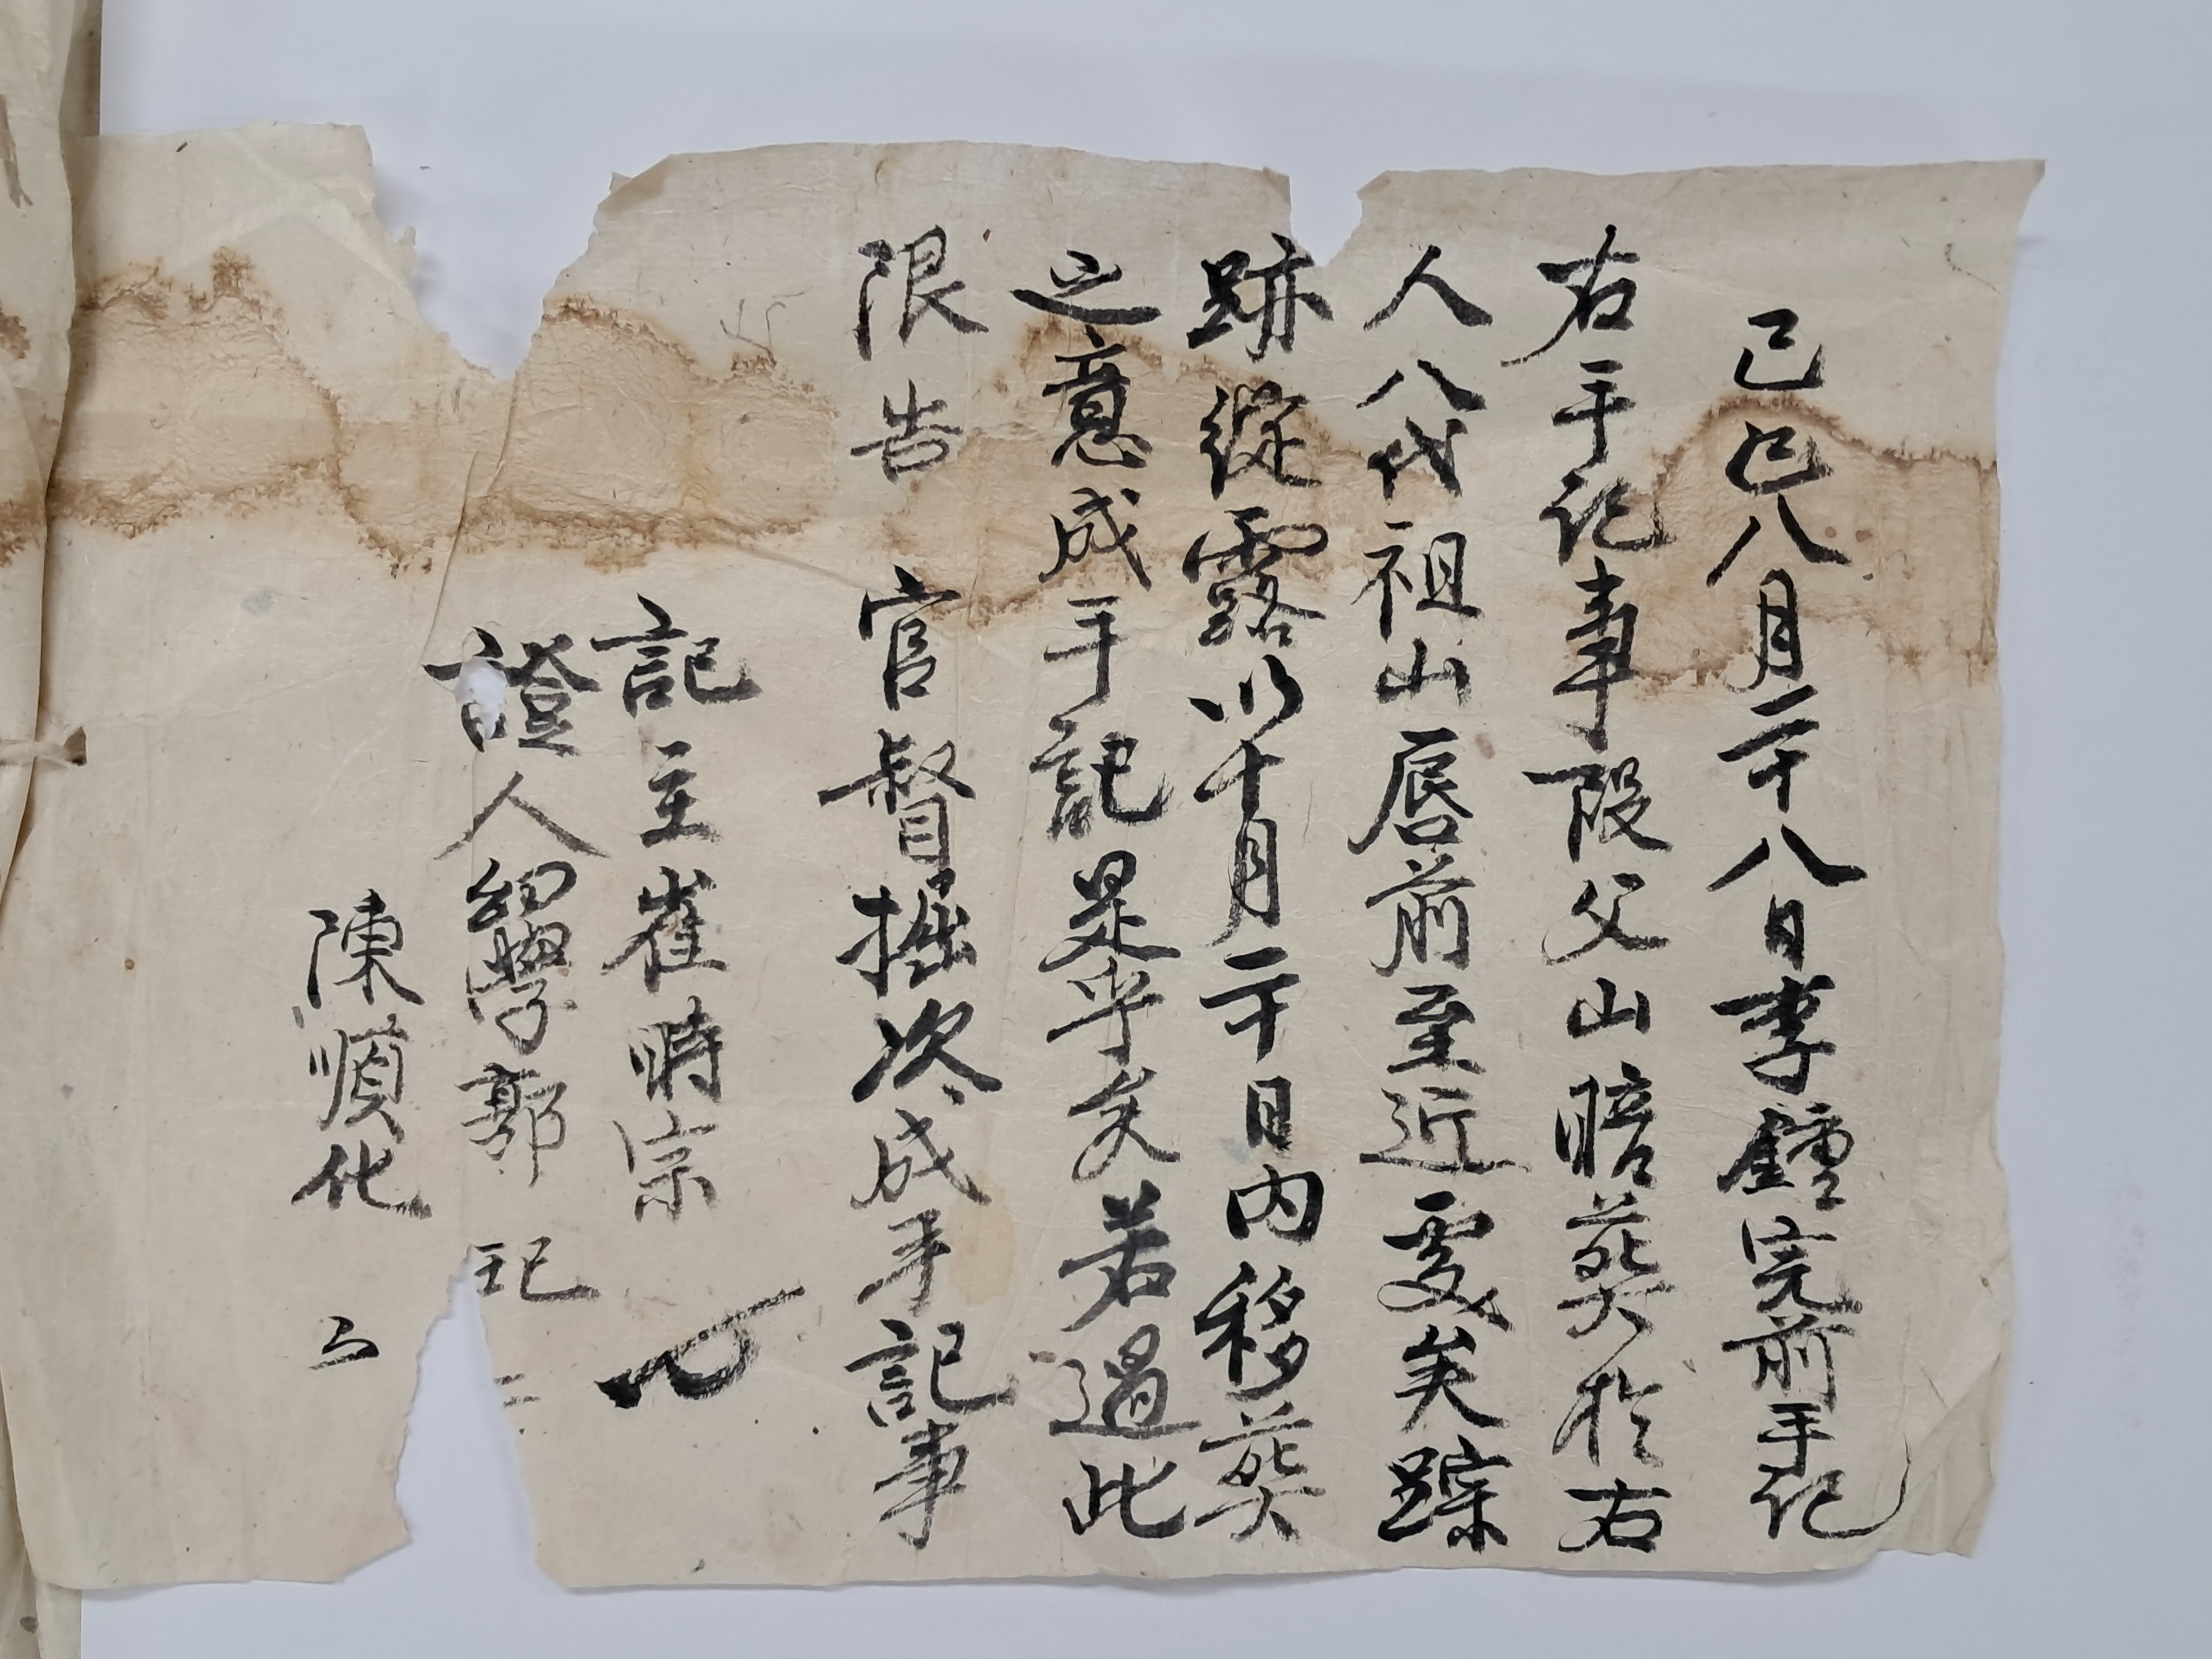 己巳八月二十八日李鍾完前手記
右手記事段父山暗葬於右
人八代祖山唇前至近處矣踪
跡綻露以十月二十日內移葬
之意成手記是乎矣若過此
限告官督掘次成手記事
記主崔時宗
證人幼學郭玘
陳順化